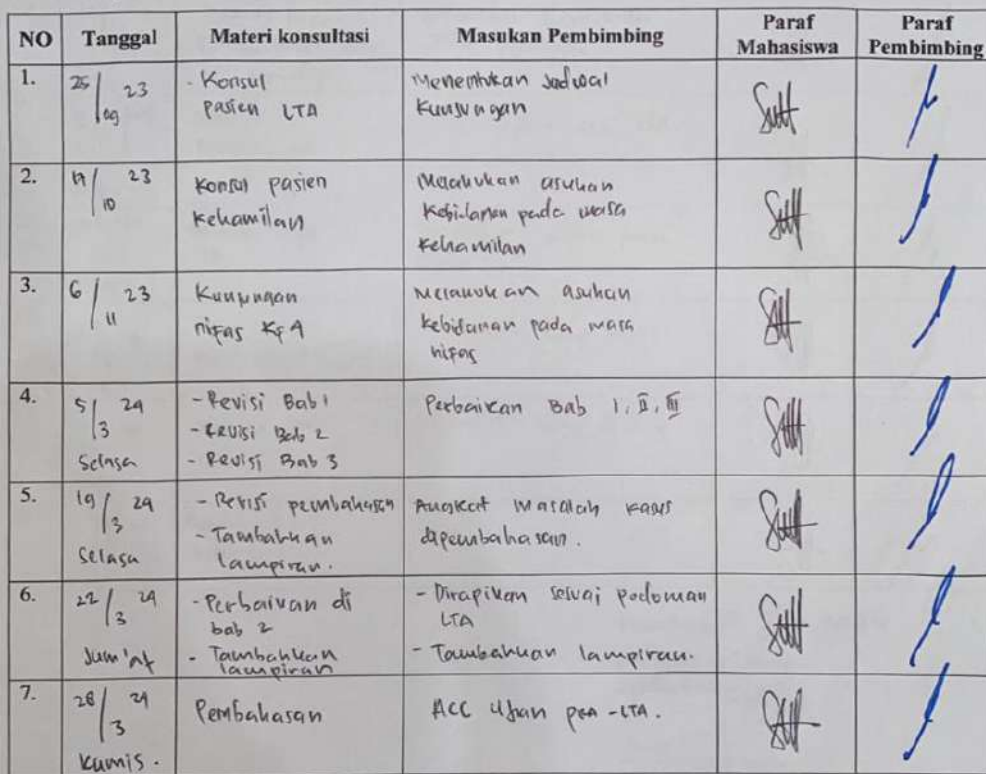 NO Tanggal Materi konsultasi Masukan Pembimbing Paraf Mahasiswa Paraf Pembimbing
1. 25/09 23 - Konsul pasien LTA Menentukan Jadwal Kunjungan
2. 17/10 23 Konsul pasien Kehamilan Melakukan asuhan Kebidanan pada masa Kehamilan
3. 6/11 23 Kunjungan nifas KF 4 Melakukan asuhan Kebidanan pada masa nifas
4. 5/3 24 Selasa - Revisi Bab 1 - Revisi Bab 2 - Revisi Bab 3 Perbaikan Bab I, II, III
5. 19/3 24 Selasa - Revisi pembahasan - Tambahkan lampiran. Angkat masalah kasus dipembahasan.
6. 22/3 24 Jum'at - Perbaikan di bab 2 - Tambahkan lampiran - Dirapikan sesuai pedoman LTA - Tambahkan lampiran.
7. 28/3 24 Kamis. Pembahasan ACC Ujian pra - LTA.